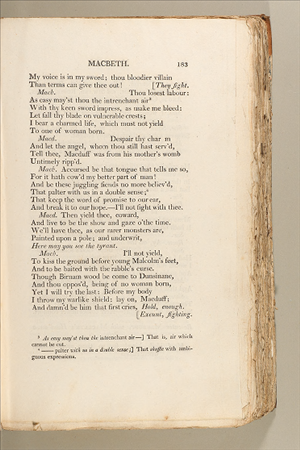 MACBETH. 183
My voice is in my sword; thou bloodier villain
Than terms can give thee out! [They fight.
Macb. Thou losest labour:
As easy may'st thou the intrenchant air⁸
With thy keen sword impress, as make me bleed:
Let fall thy blade on vulnerable crests;
I bear a charmed life, which must not yield
To one of woman born.
Macd. Despair thy char m
And let the angel, whom thou still hast serv'd,
Tell thee, Macduff was from his mother's womb
Untimely ripp'd.
Macb. Accursed be that tongue that tells me so,
For it hath cow'd my better part of man!
And be these juggling fiends no more believ'd,
That palter with us in a double sense;⁹
That keep the word of promise to our ear,
And break it to our hope.—I'll not fight with thee.
Macd. Then yield thee, coward,
And live to be the show and gaze o'the time.
We'll have thee, as our rarer monsters are,
Painted upon a pole; and underwrit,
Here may you see the tyrant.
Macb. I'll not yield,
To kiss the ground before young Malcolm's feet,
And to be baited with the rabble's curse.
Though Birnam wood be come to Dunsinane,
And thou oppos'd, being of no woman born,
Yet I will try the last: Before my body
I throw my warlike shield: lay on, Macduff;
And damn'd be him that first cries, Hold, enough.
[Exeunt, fighting.
⁸ As easy may'st thou the intrenchant air—] That is, air which
cannot be cut.
⁹ —— palter with us in a double sense;] That shuffle with ambi-
guous expressions.